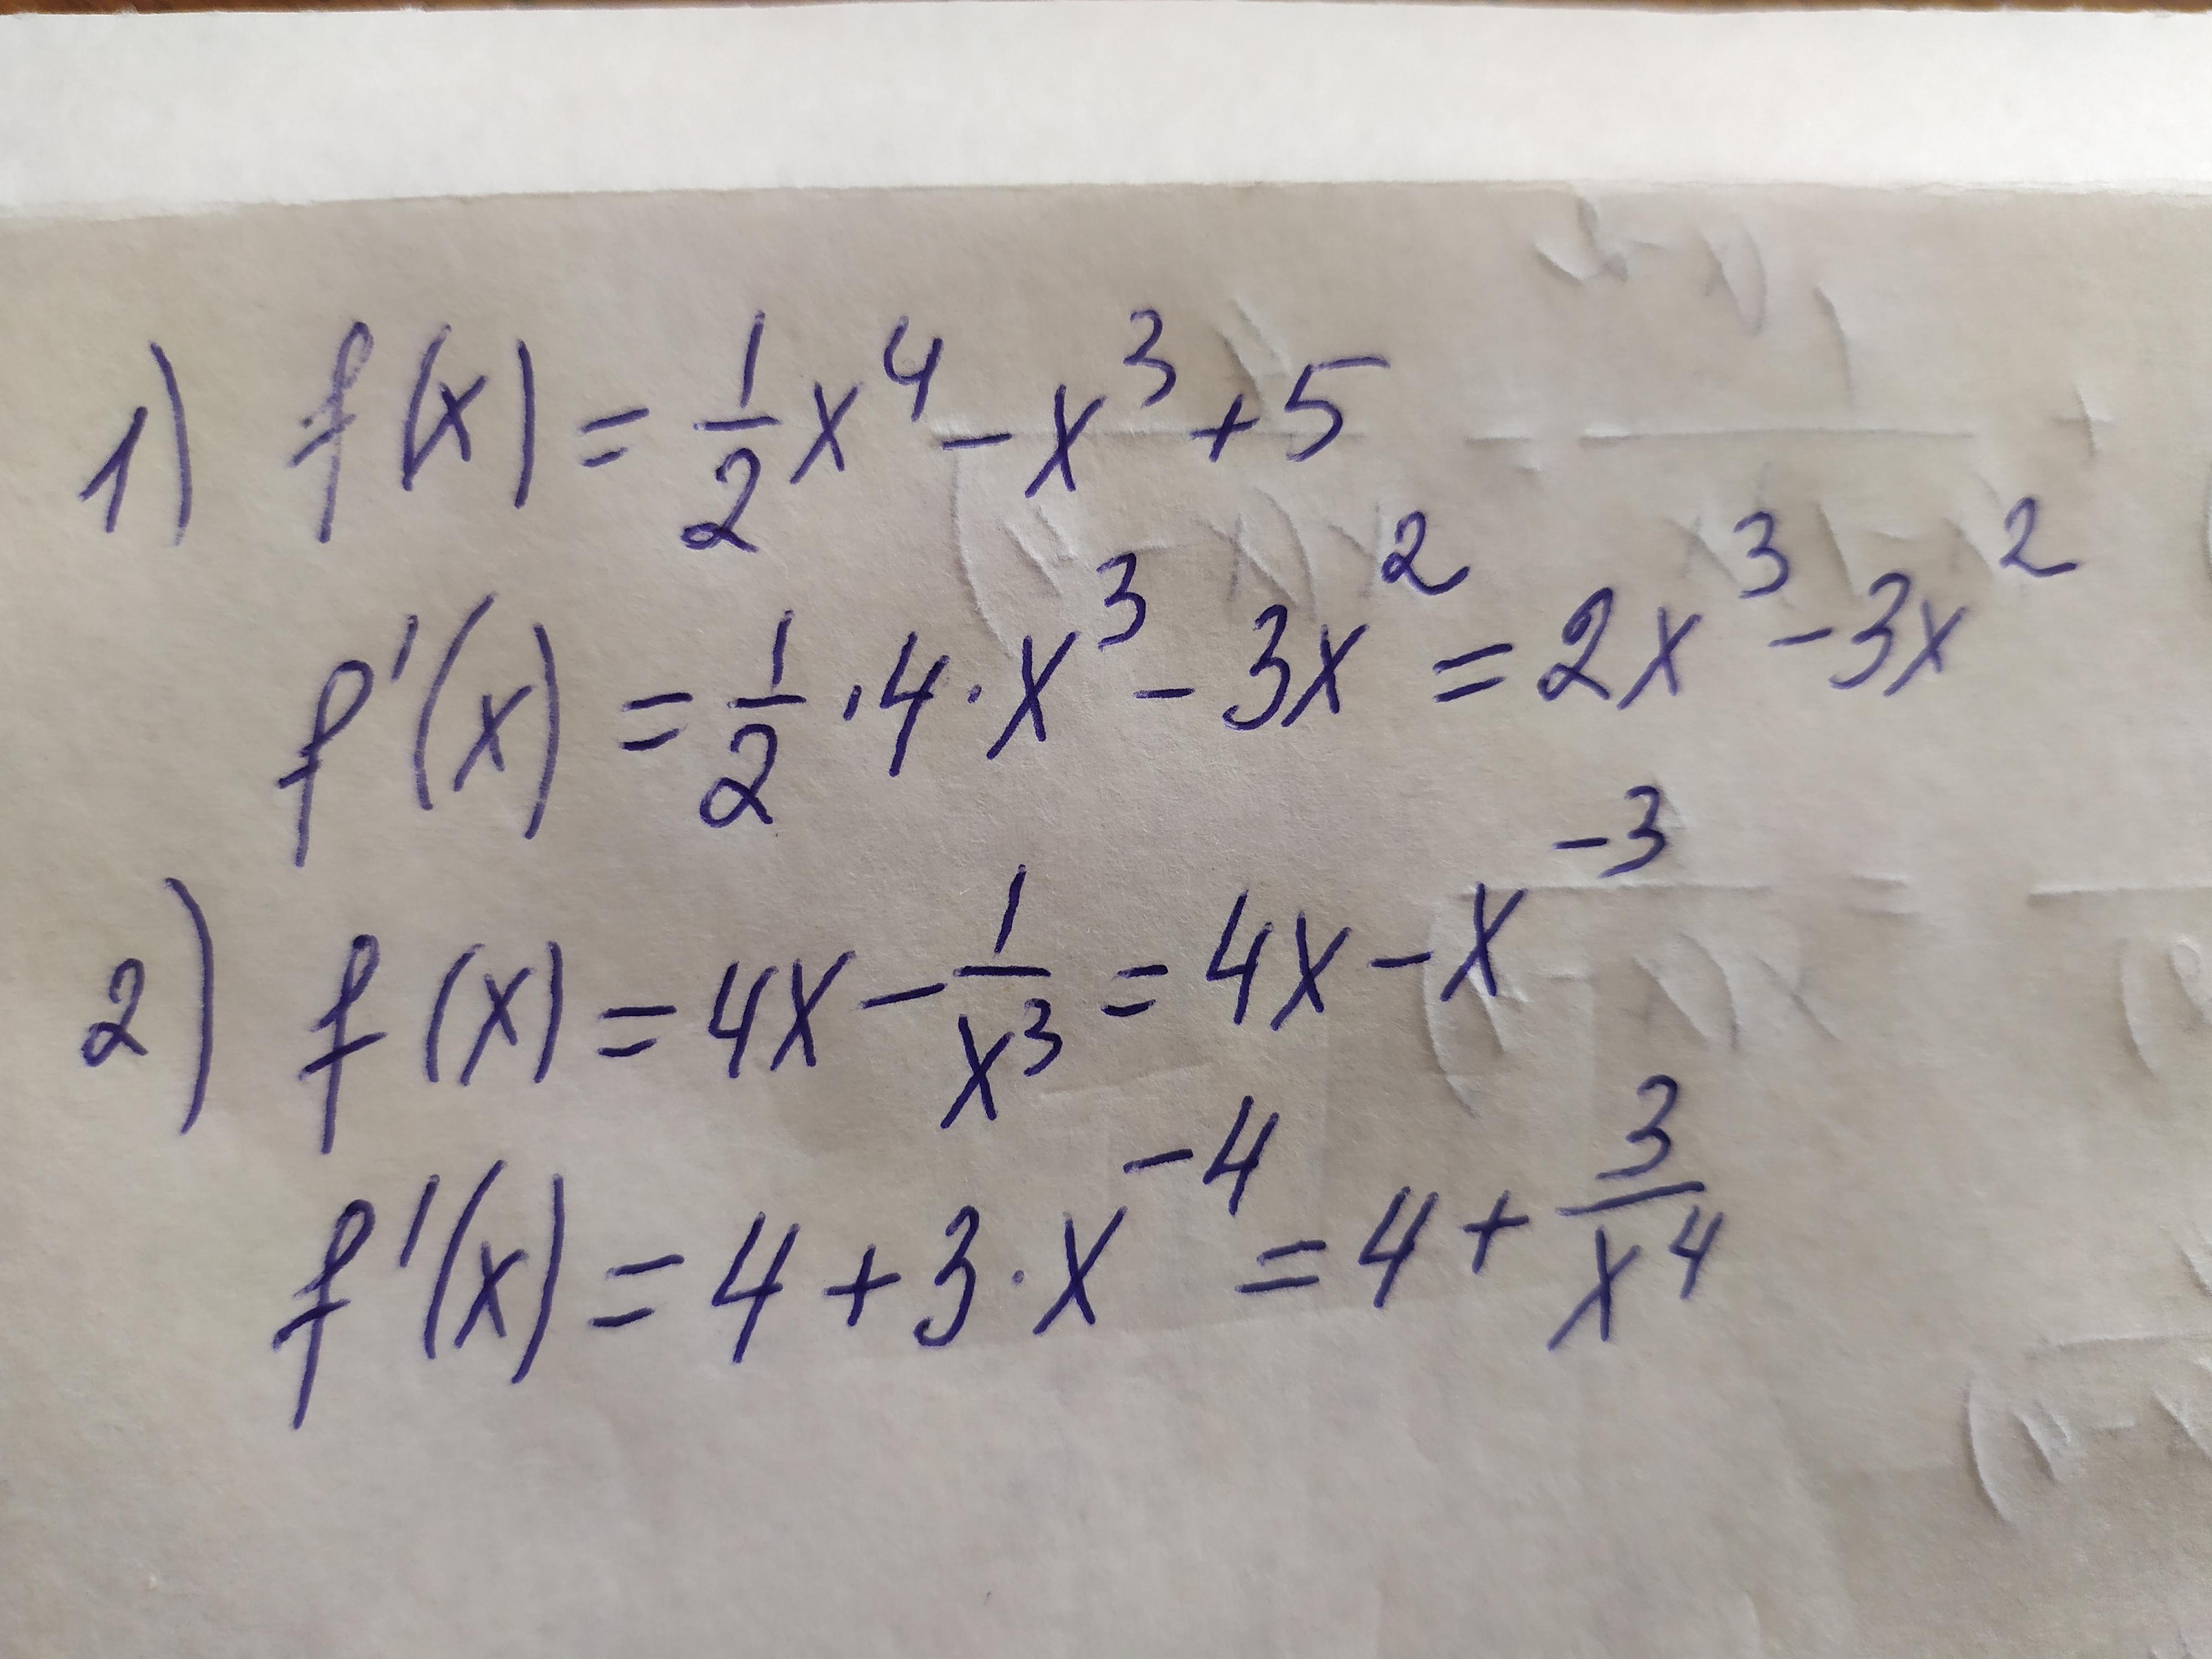 1) f(x) = 1/2 x⁴ - x³ + 5
f'(x) = 1/2 · 4 · x³ - 3x² = 2x³ - 3x²
2) f(x) = 4x - 1/x³ = 4x - x⁻³
f'(x) = 4 + 3 · x⁻⁴ = 4 + 3/x⁴